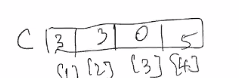 C 3 3 0 5
[1] [2] [3] [4]